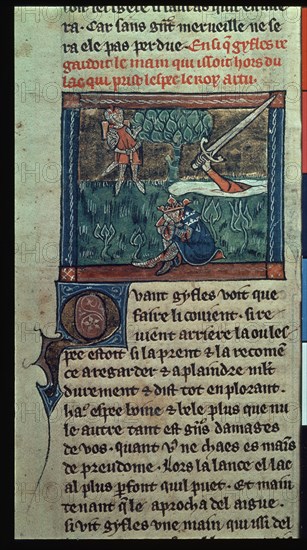 ra. Car sans grāt merueille ne se
ra ele pas perdue. Ensi q̄ gyfles re
gardoit le main qui issoit hors du
lac qui prist lespee le roy artu.
Quant gyfles voit que
faire li couient. si re
uient arriere la ou les
pee estoit si la prent & la recomē
ce a regarder & a plaindre mlt
durement & dist tot en plorant.
ha. espee boine & bele plus que nu
le autre tant est grās damages
de vos. quant vꝰ ne chaes es mais
de preudome. Lors la lance el lac
al plus parfont quil puet. Et main
tenant que le aprocha del aigue.
si vit gyfles vne main qui issi del